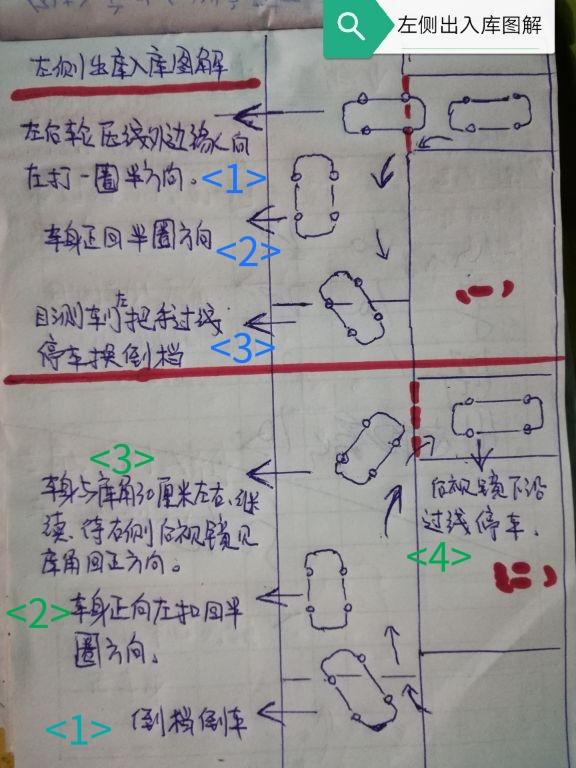 左侧出入库图解
左侧出库入库图解
左后轮压线外边缘人向
左打一圈半方向。<1>
车身正回半圈方向
<2>
目测车门左把手过线
停车换倒档 <3>
(一)
<3>
车身与库角30厘米左右.继
续.待右侧后视镜见
库角回正方向。
后视镜下沿
过线停车.
<4>
(二)
<2>车身正向左扣回半
圈方向。
<1> 倒档倒车